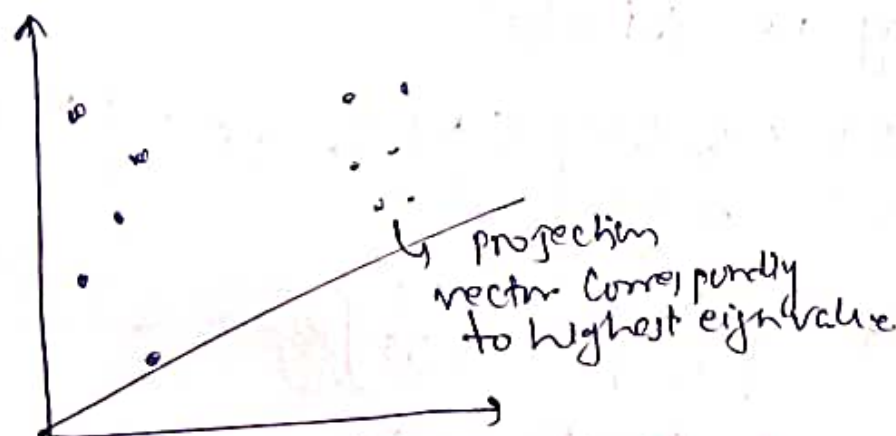 projection
vector corresponding
to highest eigen value